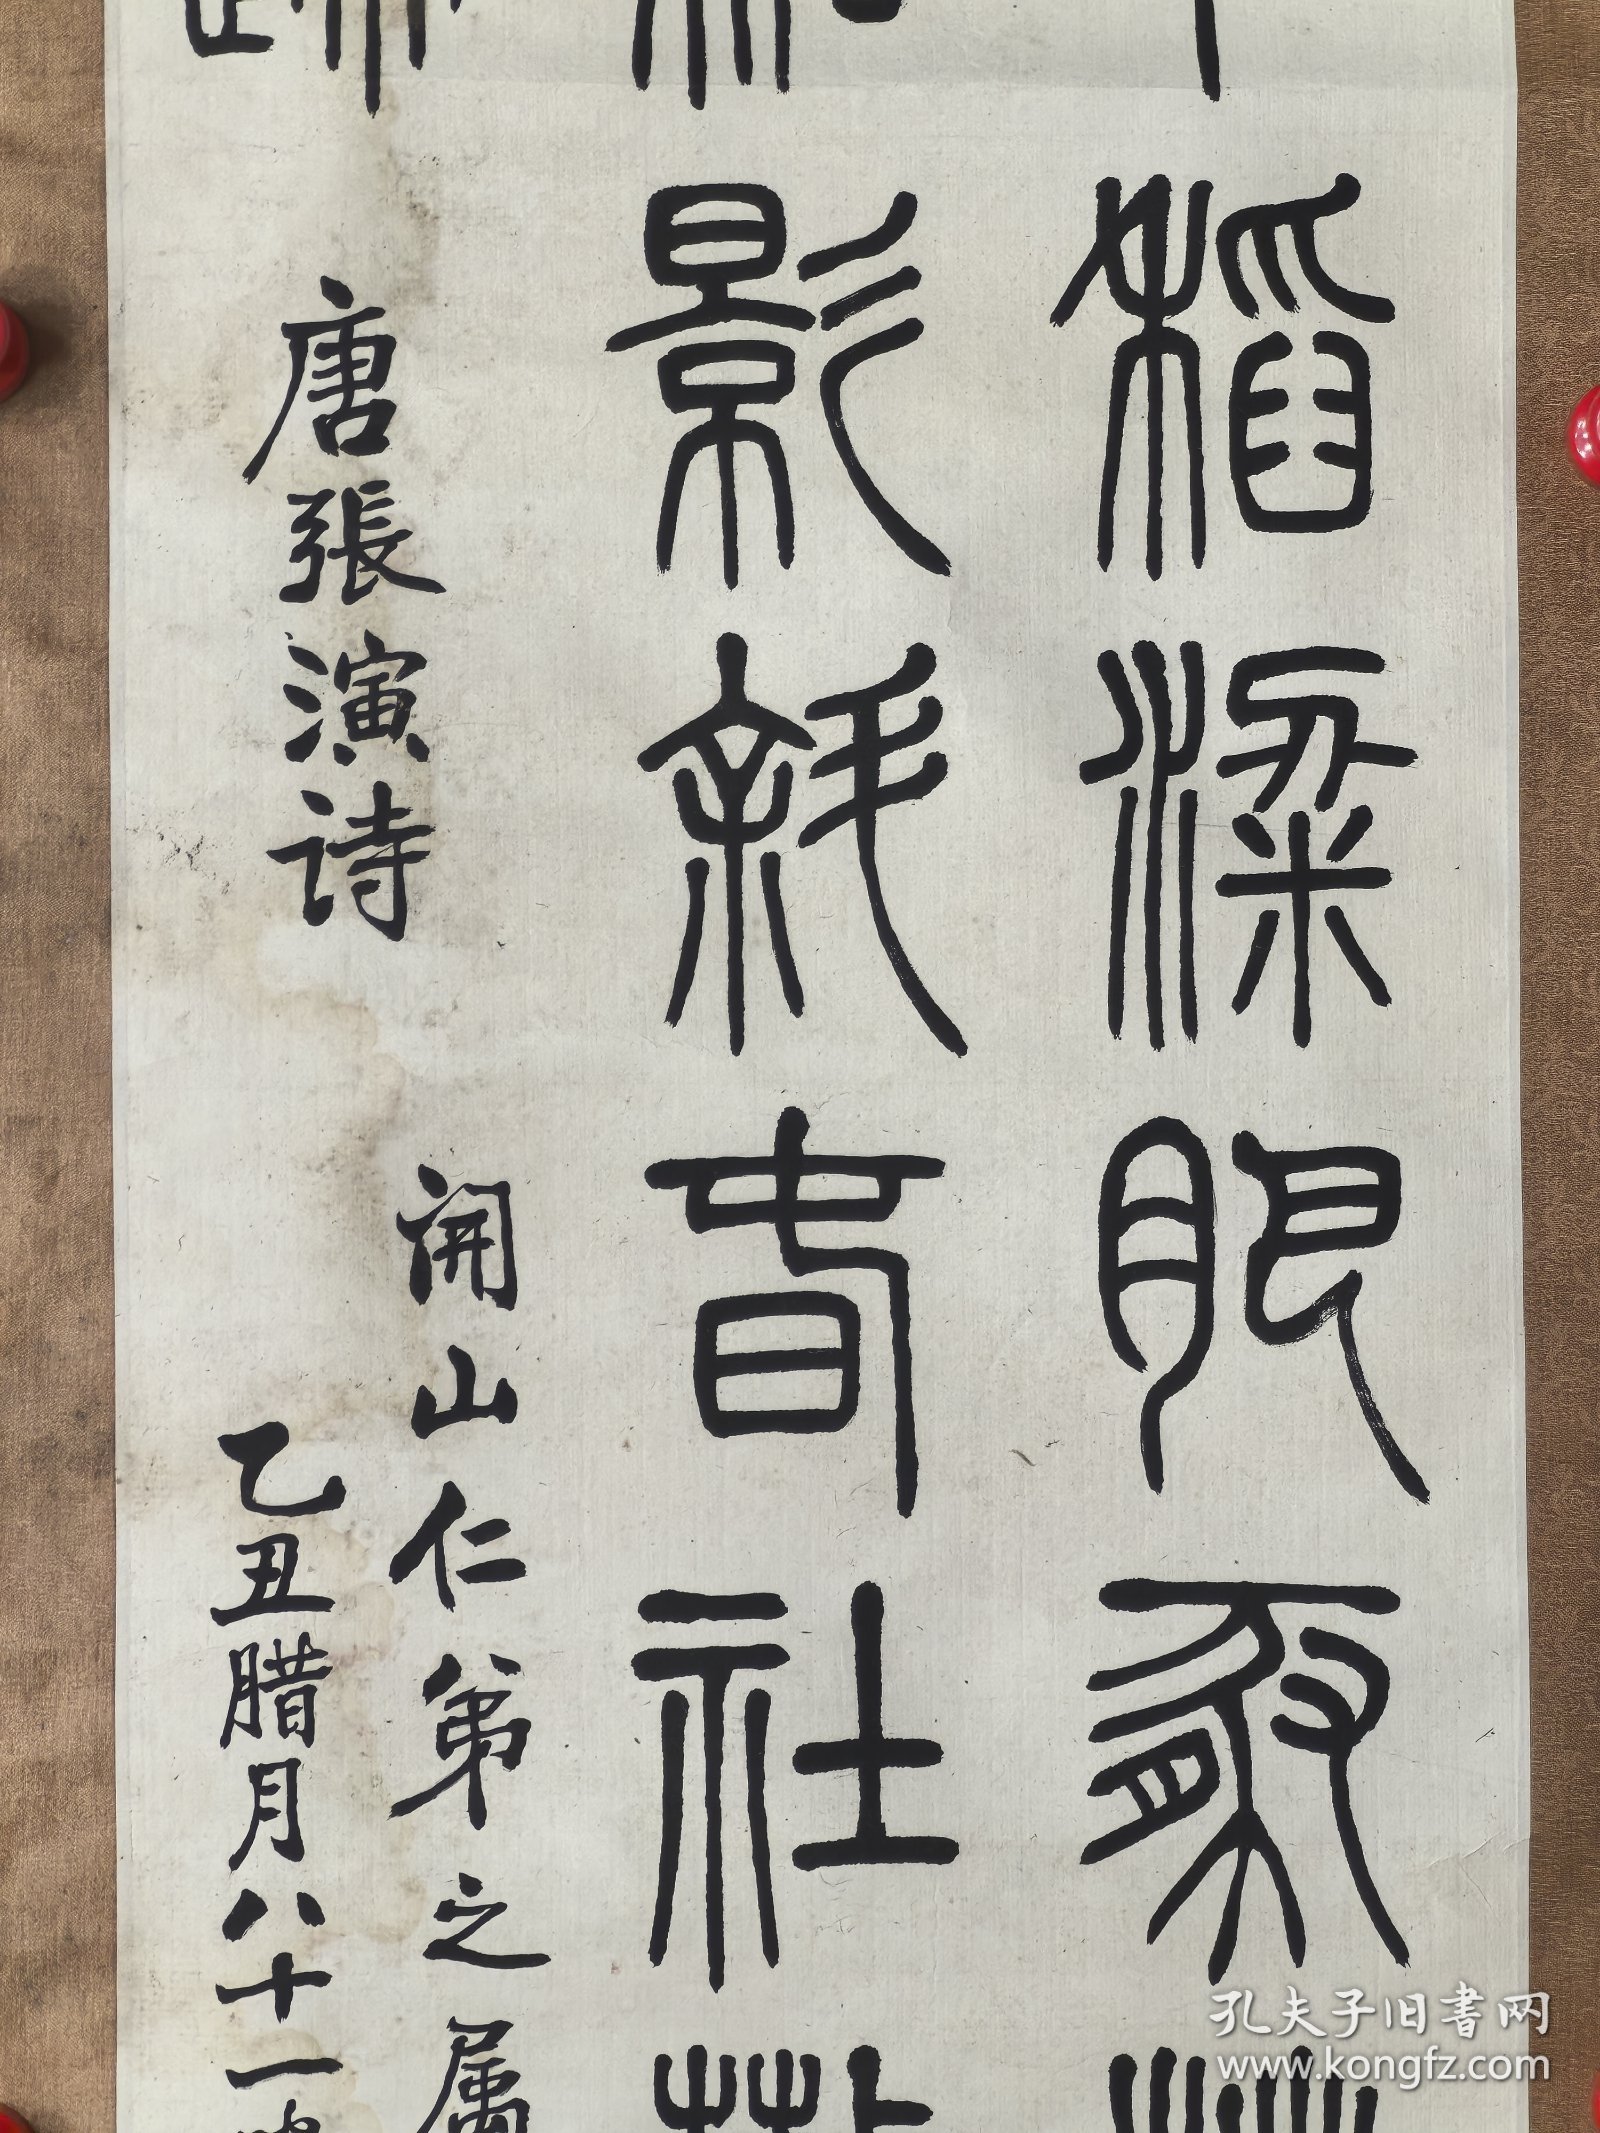 稻粱肥豚
影斜春社
唐張演诗
開山仁弟之属
乙丑腊月八十一
孔夫子旧书网
www.kongfz.com